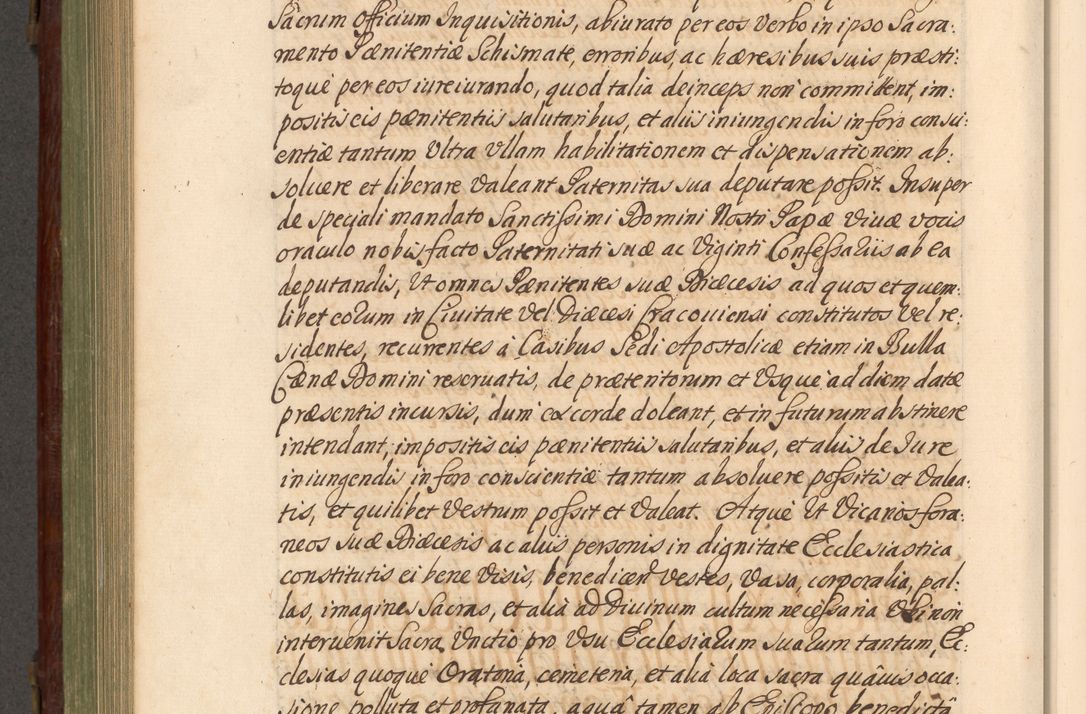 Sacrum Officium Inquisitionis, abiurato per eos Verbo in ipso Sacra:
mento Pænitentiæ Schismate, erroribus, ac hæresibus suis præsti:
toquè per eos iureiurando, quod talia deinceps non committent, im:
positis eis pænitentiis salutaribus, et aliis iniungendis in foro consci:
entiæ tantum Ultra Ullam habilitationem et dispensationem ab:
soluere et liberare Valeant Paternitas sua deputare possit. Insuper
de speciali mandato Sanctissimi Domini Nostri Papæ Viuæ vocis
oraculo nobis facto Paternitati suæ ac Viginti Confessariis ab ea
deputandis, Ut omnes Pænitentes suæ Diæcesis ad quos et quem:
libet eorum in Ciuitate Vel Diæcesi Cracouiensi constitutos Vel re:
sidentes, recurrentes à Casibus Sedi Apostolicæ etiam in Bulla
Cænæ Domini reseruatis, de præteritorum et Usquè ad diem datæ
præsentis incursis, dum ex corde doleant, et in futurum abstinere
intendant, impositis eis pænitentiis salutaribus, et aliis de Iure
iniungendis in foro conscientiæ tantum absoluere possitis et Valea:
tis, et quilibet Vestrum possit et Valeat. Atquè Ut Vicarios fora:
neos suæ Diæcesis ac aliis personis in dignitate Ecclesiastica
constitutis ei bene Visis, benedicend Vestes, Vasa, corporalia, pal:
las, imagines Sacras, et alia ad Diuinum cultum necessaria Ubi non
interuenit Sacra Unctio pro Usu Ecclesiarum suarum tantum, Ec:
clesias quoquè Oratoria, cæmeteria, et alia loca sacra quâuis occa:
sione polluta et profanata, aquâ tamen ab Episcopo benedictâ